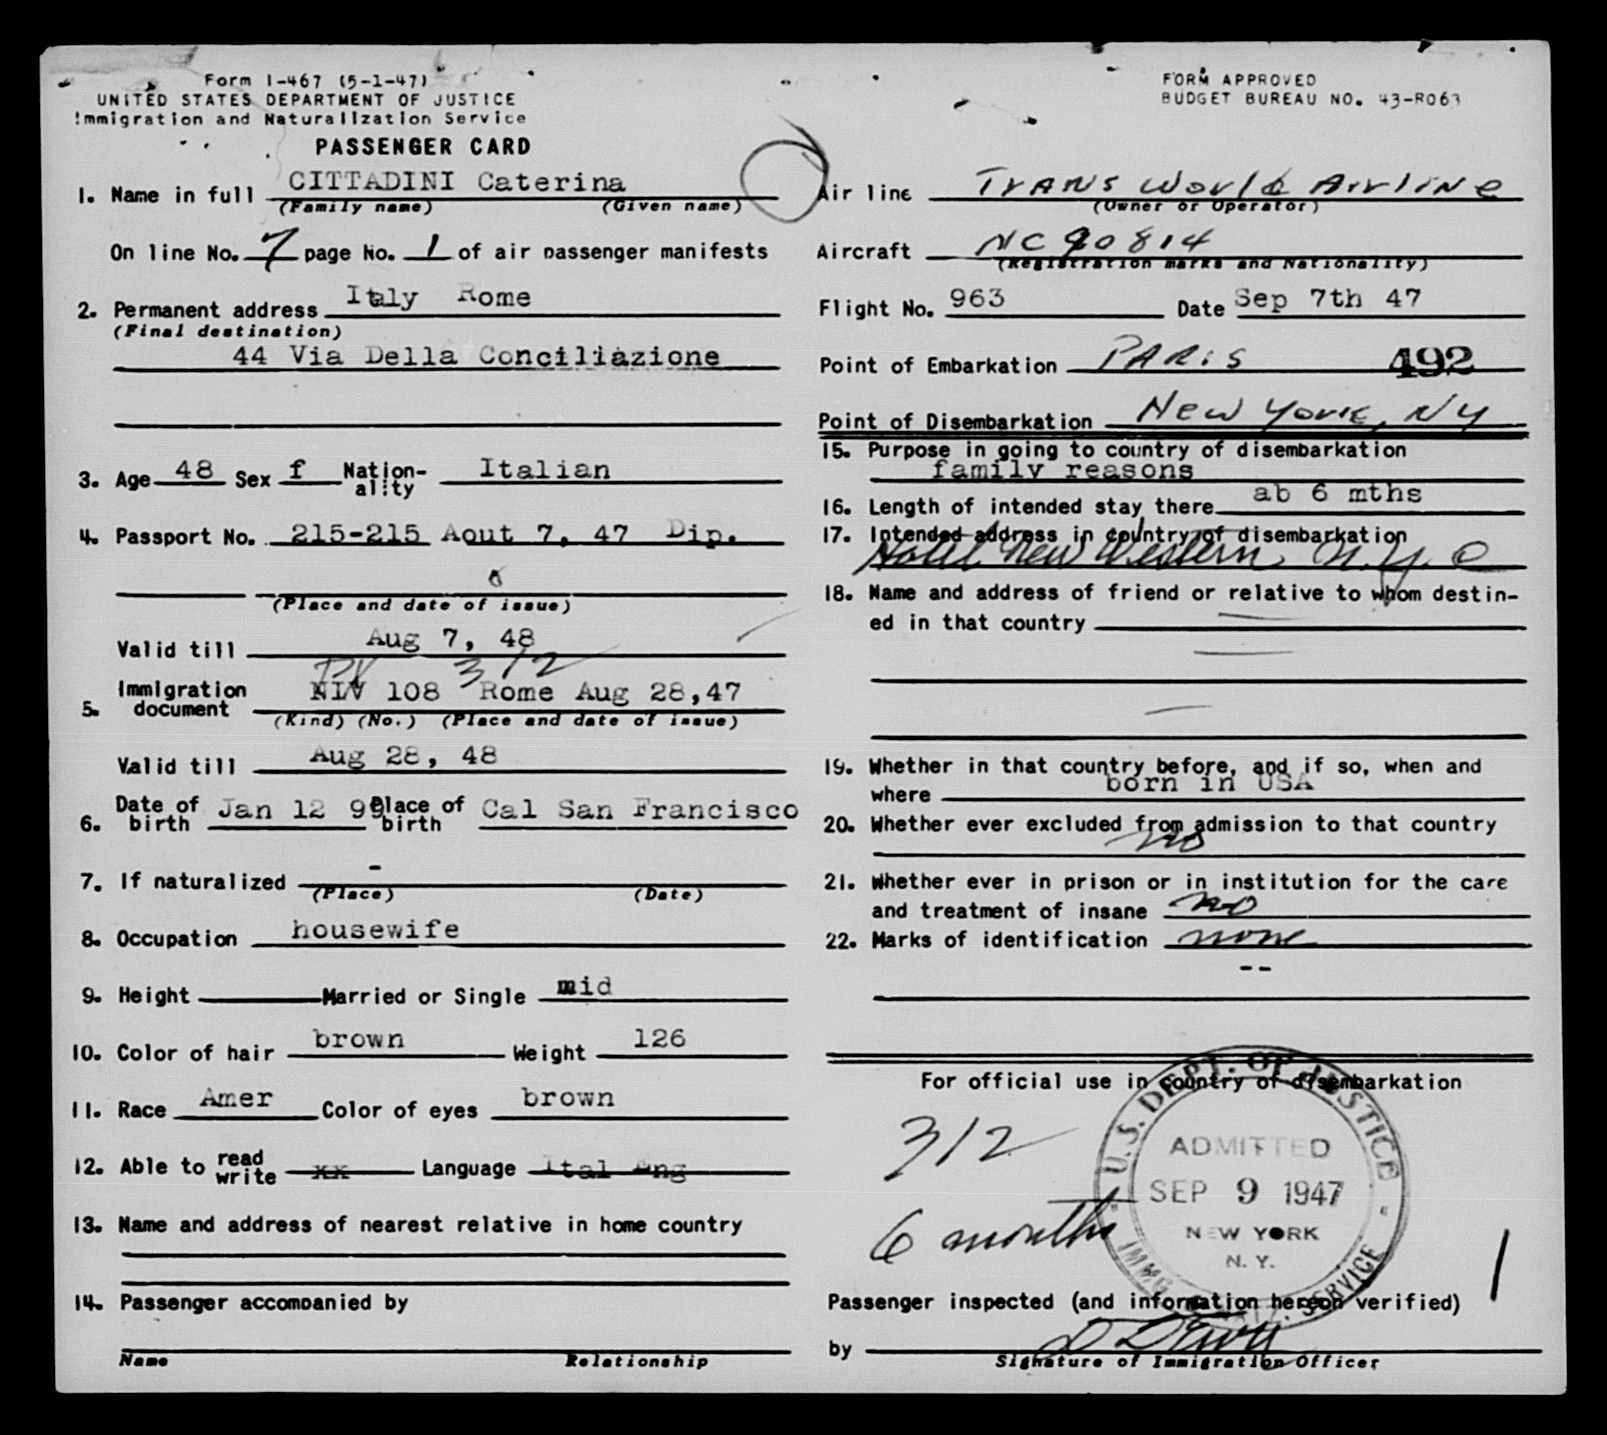 Form I-467 (5-1-47)
UNITED STATES DEPARTMENT OF JUSTICE
Immigration and Naturalization Service
PASSENGER CARD
FORM APPROVED
BUDGET BUREAU NO. 43-R063
1. Name in full CITTADINI Caterina
(Family name) (Given name)
On line No. 7 page No. 1 of air passenger manifests
2. Permanent address Italy Rome
(Final destination)
44 Via Della Conciliazione
3. Age 48 Sex f Nation-ality Italian
4. Passport No. 215-215 Aout 7, 47 Dip.
(Place and date of issue)
Valid till Aug 7, 48
PV 3/2
5. Immigration document NIV 108 Rome Aug 28,47
(Kind) (No.) (Place and date of issue)
Valid till Aug 28, 48
6. Date of birth Jan 12 99 Place of birth Cal San Francisco
7. If naturalized -
(Place) (Date)
8. Occupation housewife
9. Height Married or Single mid
10. Color of hair brown Weight 126
11. Race Amer Color of eyes brown
12. Able to read write xx Language Ital Eng
13. Name and address of nearest relative in home country
14. Passenger accompanied by
Name Relationship
Air line Trans World Airline
(Owner or Operator)
Aircraft NC90814
(Registration marks and Nationality)
Flight No. 963 Date Sep 7th 47
Point of Embarkation PARIS 492
Point of Disembarkation New York, NY
15. Purpose in going to country of disembarkation
family reasons
16. Length of intended stay there ab 6 mths
17. Intended address in country of disembarkation
Hotel New Western N.Y.C
18. Name and address of friend or relative to whom destin-
ed in that country
19. Whether in that country before, and if so, when and
where born in USA
20. Whether ever excluded from admission to that country
no
21. Whether ever in prison or in institution for the care
and treatment of insane no
22. Marks of identification none
--
For official use in country of disembarkation
3/2
6 months
U.S. DEPT. OF JUSTICE
ADMITTED
SEP 9 1947
NEW YORK
N.Y.
IMMIG. SERVICE
Passenger inspected (and information hereon verified)
by
Signature of Immigration Officer